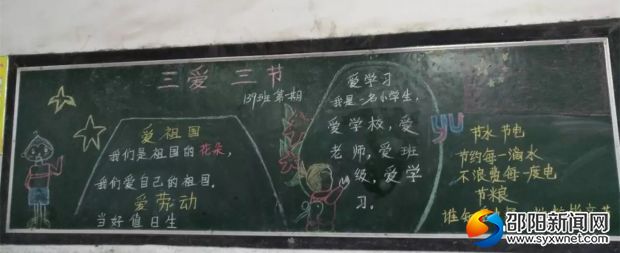 三爱 三节
139班 第一期
爱祖国
我们是祖国的花朵,
我们爱自己的祖国.
爱劳动
当好值日生
爱学习
我是一名小学生,
爱学校,爱
老师,爱班
级,爱学
习.
yu
节水 节电
节约每一滴水
不浪费每一度电
节粮
谁知
皆辛苦
邵阳新闻网
www.syxwnet.com